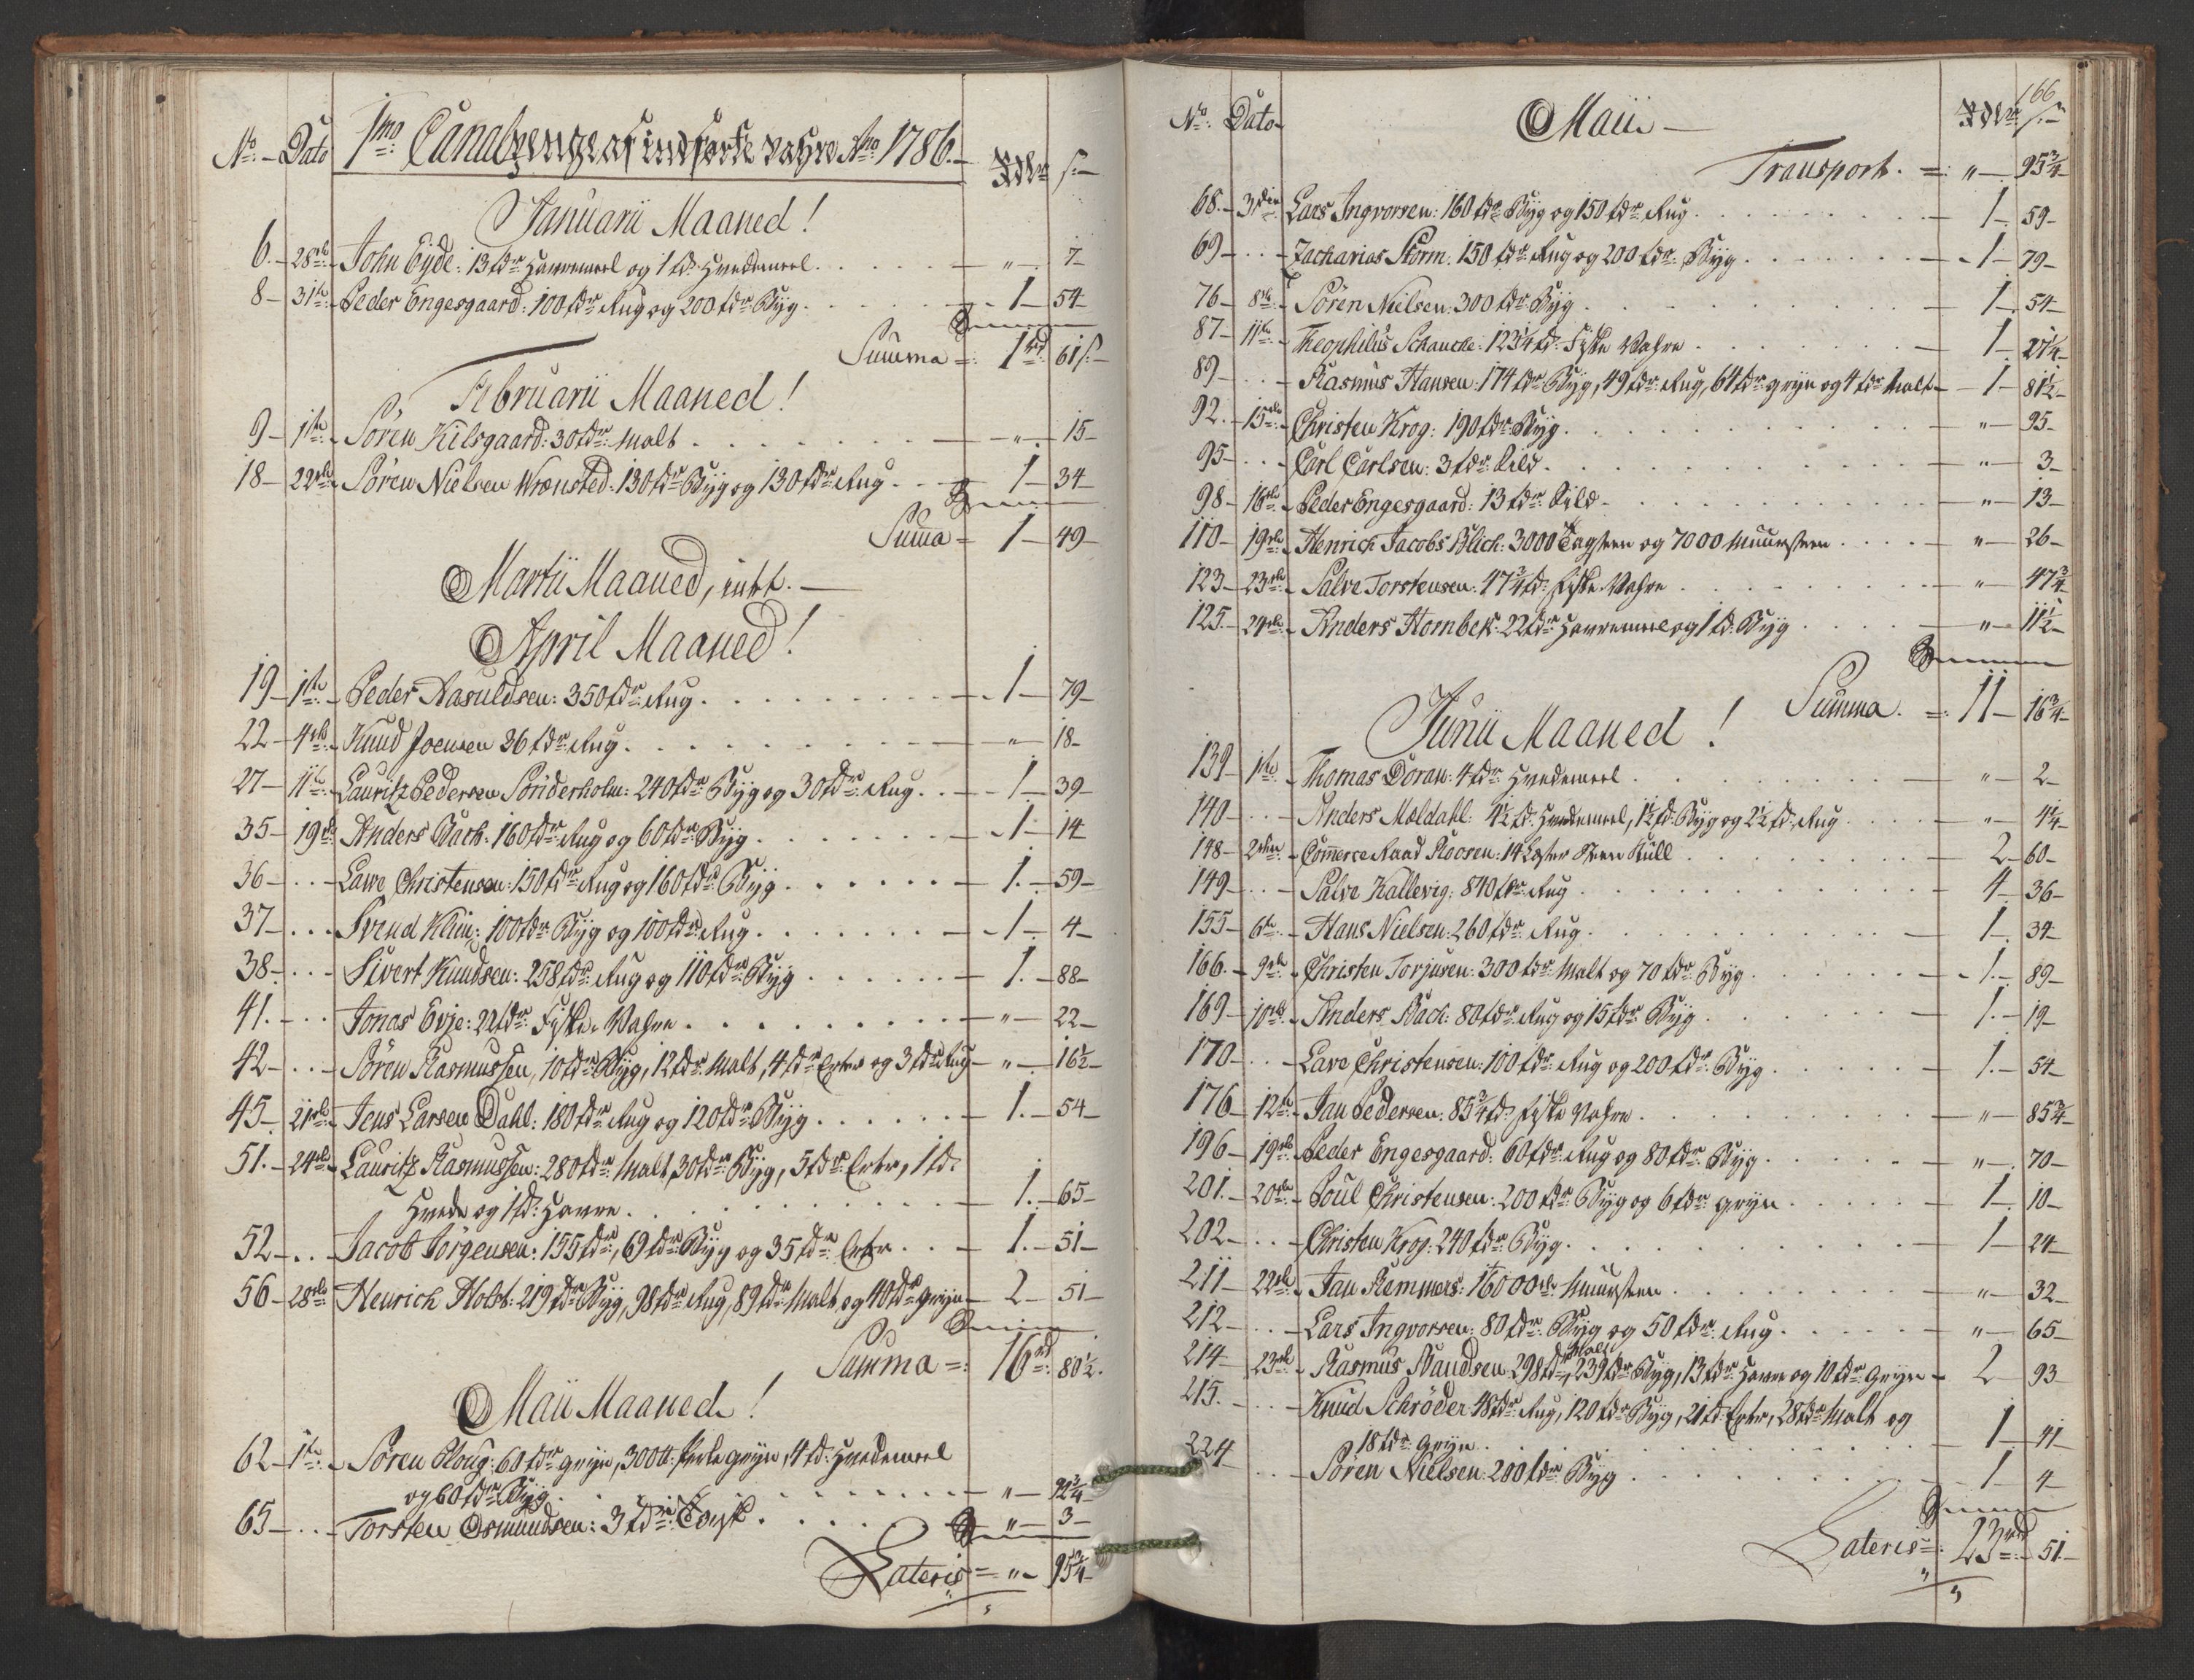 No: Dato 1mo: Canalpenge af indførte Vahre Ao: 1786. Rdlr s:
Januarii Maaned!
6. 28de John Eyde: 13 tdr Havremeel og 1 td: Hvedemeel. " 7
8 31te Peder Engesgaard: 100 tdr Rug og 200 tdr Byg. 1 54
Summa = 1rd 61 s:
Februarii Maaned!
9 1te Sören Kilsgaard: 30 tdr: Malt " 15
18 22de Sören Nielsen Wrensted: 130 tdr Byg og 130 tdr Rug. 1 34
Suma = 1 49
Martii Maaned, intet.
April Maaned!
19 1te Peder Aasuldsen: 350 tdr: Rug. 1 79
22 4de Knud Joensen 36 tdr Rug. " 18
27 11te Lauritz Pedersen Sönderholm: 240 tdr Byg og 30 tdr: Rug. 1 39
35 19de Anders Bach: 160 tdr Rug og 60 tdr Byg 1 14
36 Lawe Christensen: 150 tdr Rug og 160 tdr Byg 1. 59
37 Svend Klim: 100 tdr Byg og 100 tdr Rug. 1 4
38 Sivert Knudsen: 258 tdr Rug og 110 tdr Byg 1. 88
41. Jonas Evje: 22 tdr: Fiske Vahre " 22
42 Sören Rasmussen, 10 tdr Byg, 12 tdr Malt, 4 tdr Erter og 3 tdr Rug " 16½
45 21de Jens Larsen Dahl: 180 tdr Rug og 120 tdr Byg 1. 54
51. 24de Lauritz Rasmussen: 280 tdr Malt, 30 tdr Byg, 5 tdr Erter, 1 td:
Hvede og 1 td: Havre. 1. 65
52 Jacob Jörgensen: 155 tdr, 69 tdr Byg og 35 tdr Erter 1. 51
56 28de Henrich Holst: 219 tdr Byg, 98 tdr Rug, 89 tdr Malt og 40 tdr gryn 2 51
Summa = 16rd 80½.
Maii Maaned!
62 1te Sören Ploug: 60 tdr gryn, 300 ℔ Perlegryn, 4 td: Hvedemeel
og 60 tdr Byg. " 92¾
65 Torsten Osmundsen: 3 tdr: Torsk " 3
Lateris = " 95¾
166
No: Dato Maii Rdlr s:
Transport. = " 95¾
68. 3die Lars Ingvorsen: 160 tdr Byg og 150 tdr Rug 1 59
69 Zacharias Storm: 150 tdr Rug og 200 tdr: Byg 1 79
76 8de Sören Nielsen: 300 tdr Byg 1 54
87 11te Theophilus Schancke: 123¼ td: Fiske Vahre 1 27¼
89 Rasmus Hansen: 174 tdr Byg, 49 tdr Rug, 64 tdr gryn og 4 tdr Malt 1 81½
92. 15de Christen Krog: 190 tdr: Byg. " 95
95 Carl Carlsen: 3 tdr: Sild. " 3
98 16de Peder Engesgaard: 13 tdr: Sild " 13
110 19de Henrich Jacobs Blich: 3000 Tagsteen og 7000 Muursteen " 26
123 23de Salve Torstensen: 47¾ td: fiske Vahre " 47¾
125 24de Anders Hornbek: 22 tdr Havremeel og 1 td. Byg " 11½
Summa. = 11 16¾
Junii Maaned!
139 1te Thomas Doran: 4 tdr Hvedemeel " 2
140 Anders Moldahl: 4½ td: Hvedemeel, 1½ td: Byg og 2½ td: Rug " 4¼
148 2den Commerce Raad Roosen: 14 Læster Steen Kull 2 60
149 Salve Kallevig: 840 tdr Rug 4 36
155 6te Hans Nielsen: 260 tdr: Rug. 1 34
166. 9de Christen Torjusen: 300 tdr Malt og 70 tdr Byg 1. 89
169 10de Anders Bach: 80 tdr Rug og 15 tdr: Byg 1. 19
170 Lave Christensen: 100 tdr Rug og 200 tdr: Byg. 1. 54
176 12te Jan Pedersen: 85¾ td: fiske Vahre. " 85¾
196 19de Peder Engesgaard: 60 tdr: Rug og 80 tdr: Byg " 70
201. 20de Poul Christensen: 200 tdr Byg og 6 tdr gryn 1 10
202 Christen Krog: 240 tdr: Byg. 1 24
211 22de Jan Remmers: 16000de Muursteen " 32
212 Lars Ingvorsen: 80 tdr: Byg og 50 tdr: Rug. " 65
214 23de Rasmus Baudsen 298 tdr Malt, 239 tdr Byg, 13 tdr: Havre og 10 tdr Gryn 2 93
215. Knud Schröder 48 tdr Rug, 120 tdr Byg, 21 td Erter, 28 tdr Malt og
18 tdr: Gryn. 1 41
224 Sören Nielsen: 200 tdr: Byg 1 4
Lateris = 23rd 51.